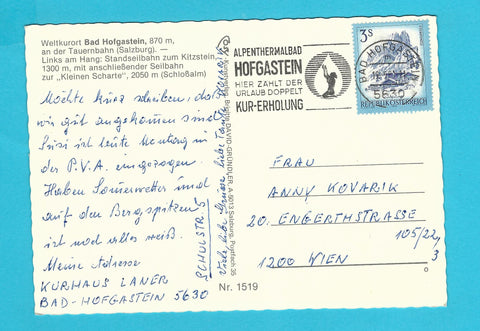 Weltkurort Bad Hofgastein, 870 m,
an der Tauernbahn (Salzburg). —
Links am Hang: Standseilbahn zum Kitzstein,
1300 m, mit anschließender Seilbahn
zur „Kleinen Scharte", 2050 m (Schloßalm)
Möchte kurz schreiben, daß
wir gut angekommen sind
ist heute Montag in
der P.V.A. eingezogen.
Haben Sonnenwetter und
auf den Bergspitzen
ist noch alles weiß.
Meine Adresse
KURHAUS LANER
BAD-HOFGASTEIN 5630
SCHULSTR. 5
Viele, liebe Grüße, liebe Tante
DAVID-GRÜNDLER, A-5013 Salzburg, Postfach 35
Nr. 1519
ALPENTHERMALBAD
HOFGASTEIN
HIER ZÄHLT DER
URLAUB DOPPELT
KUR-ERHOLUNG
BAD HOFGASTEIN
5630
3S
REPUBLIK ÖSTERREICH
FRAU
ANNY KOVARIK
20. ENGERTHSTRASSE
105/22,
3
1200 WIEN